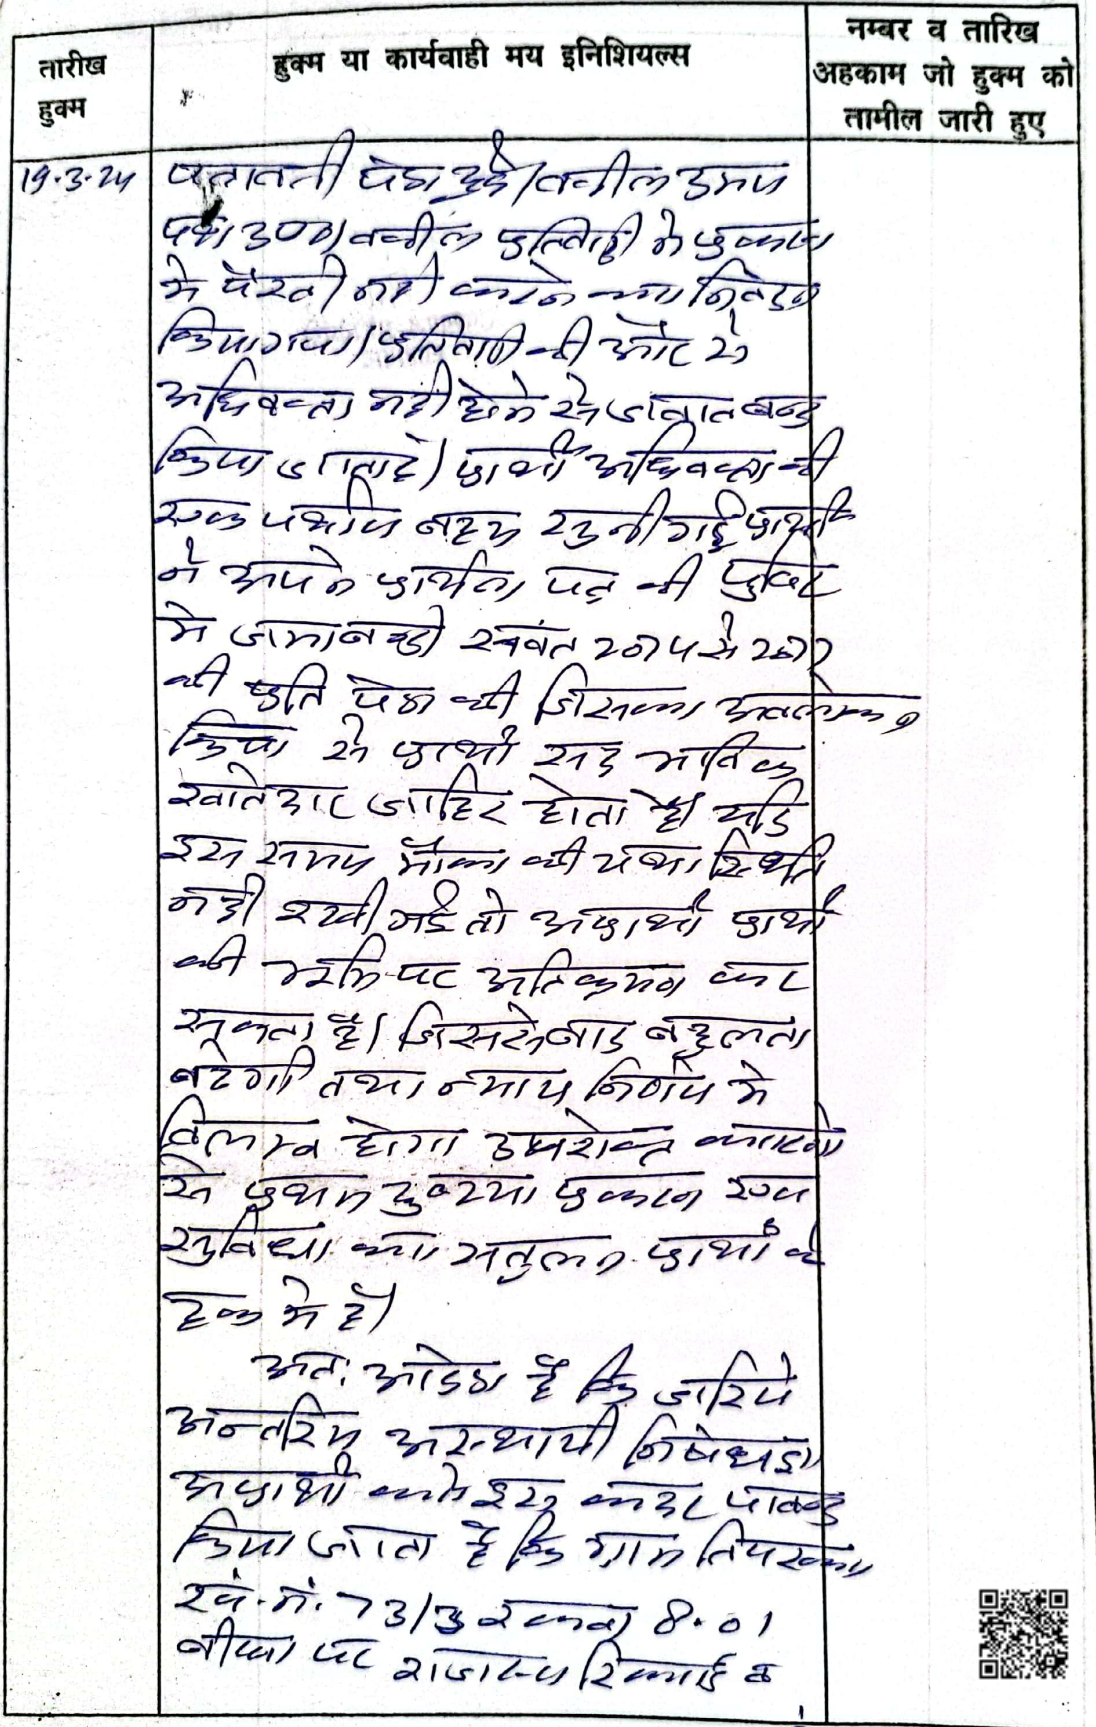 तारीख
हुक्म
हुक्म या कार्यवाही मय इनिशियल्स
नम्बर व तारिख
अहकाम जो हुक्म को
तामील जारी हुए
19.3.24
पत्रावली पेश हुई। वकील उभय
पक्ष उप०। वकील प्रतिवादी ने प्रकरण
मे पैरवी नही करने का निवेदन
किया गया। प्रतिवादी की ओर से
अधिवक्ता नही होने से जवाब बन्द
किया जाता है। प्रार्थी अधिवक्ता की
एक पक्षीय बहस सुनी गई प्रार्थी
ने अपने प्रार्थना पत्र की पुष्टि
मे जमाबन्दी सवंत 2074 से 2077
की प्रति पेश की जिसका अवलोकन
किया से प्रार्थी सह मालिक
खातेदार जाहिर होता है। यदि
इस समय मौका की यथा स्थिती
नही रखी गई तो अप्रार्थी प्रार्थी
की भूमि पर अतिक्रमण कर
सकता है। जिससे वाद बहुलता
बढेगी तथा न्याय निर्णय मे
विलम्ब होगा उपरोक्त कारणो
से प्रथम दृष्टया प्रकरण एवं
सुविधा का सतुलन प्रार्थी के
हक मे है।
अत: आदेश है कि जरिये
अन्तरिम अस्थायी निषेधाज्ञा
अप्रार्थी को इस कदर पाबन्द
किया जाता है कि ग्राम
ख.नं. 73/3 रकबा 8.01
बीघा पर राजस्व रिकार्ड व